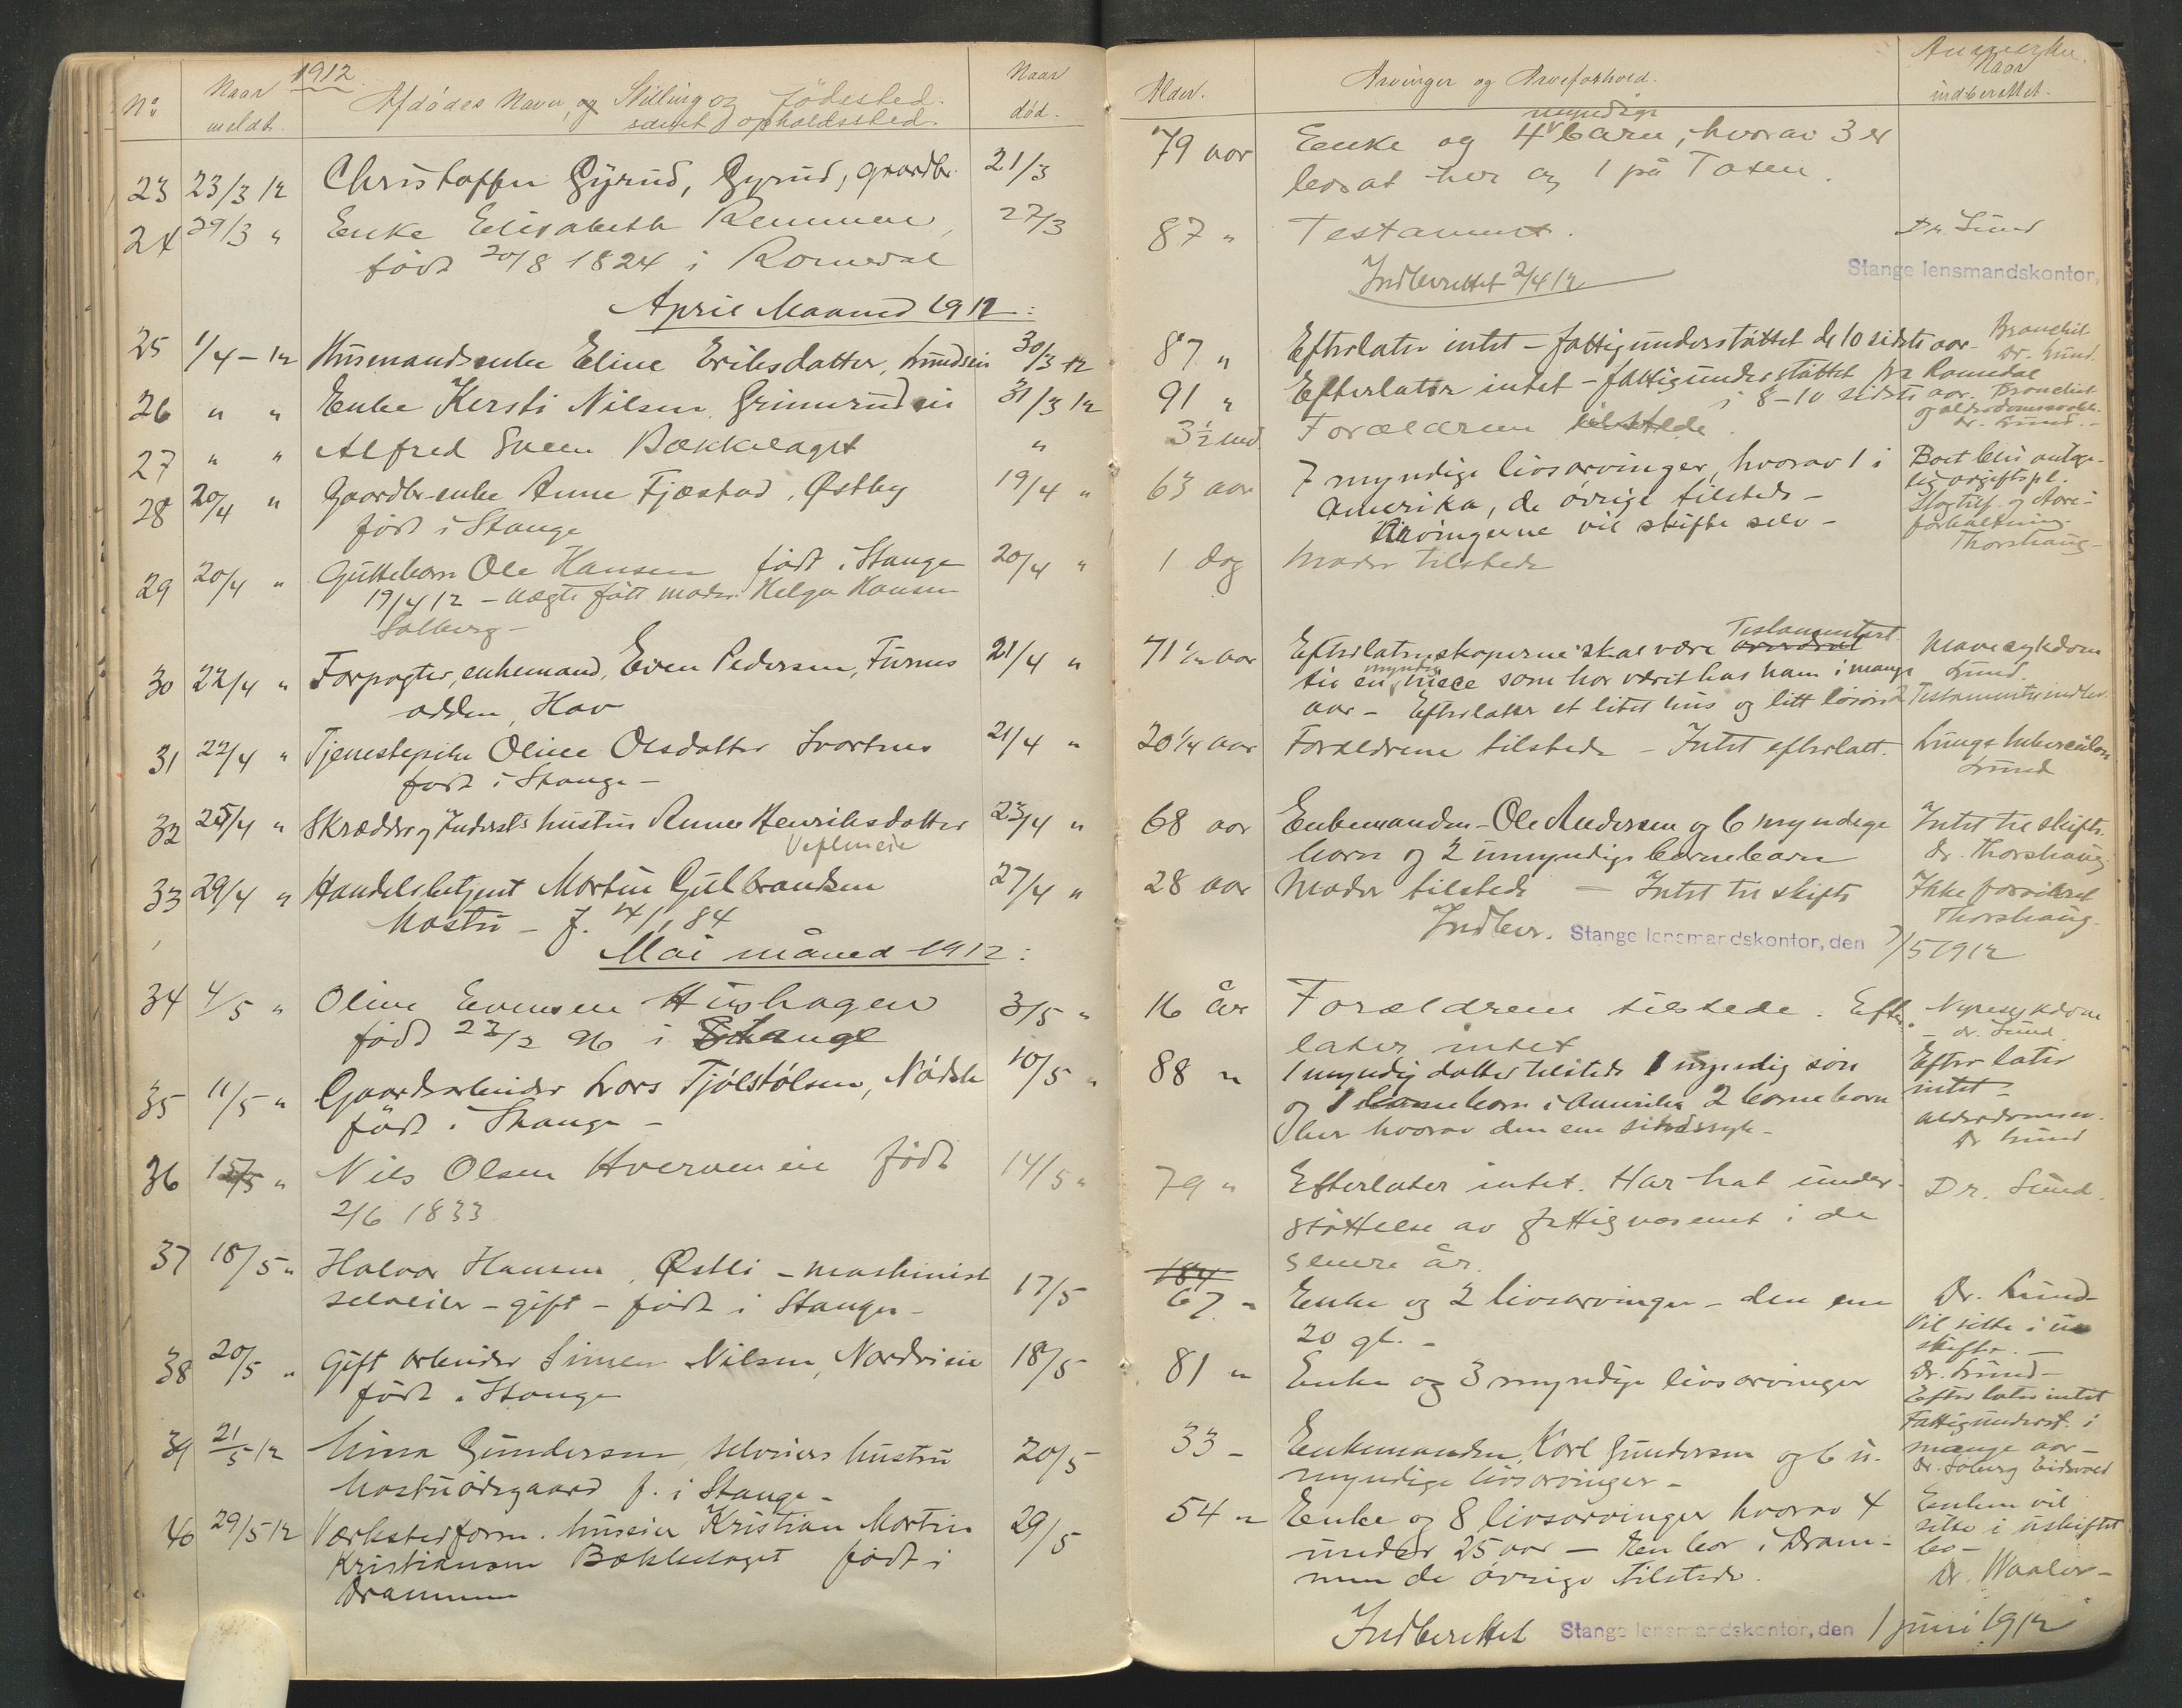 1912
No. Naar meldt. Afdødes Navn, og Stilling og Fødested samt opholdssted. Naar død.
23 23/3 12 Christoffer Gyrud, Gyrud, gaardbr. 21/3
24 29/3 " Enke Elisabeth Remmen, 27/3
født 20/8 1824 i Romedal
April Maaned 1912:
25 1/4-12 Husmandsenke Eline Eriksdatter, Lundseie 30/3 12
26 " " Enke Kersti Nilsen Grimerudeie 31/3 12
27 " " Alfred Sveen Bækkelaget "
28 20/4 " Gaardbr.enke Anne Fjæstad, Østby 19/4 "
født i Stange
29 20/4 " Guttebarn Ole Hansen født i Stange 20/4 "
19/4 12 - uægte født moder Helga Hansen
Solberg -
30 22/4 " Forpagter, enkemand, Even Pedersen, Furnes 21/4 "
odden, Hav
31 22/4 " Tjenestepike Oline Olsdatter Svartnes 21/4 "
født i Stange -
32 25/4 " Skrædder og Inderstshustru Anne Henriksdatter 23/4 "
33 29/4 " Handelsbetjent Martin Gulbrandsen 27/4 "
Mostu - f. 14/1 84
Mai måned 1912:
34 4/5 " Oline Evensen Huphagen 3/5 "
født 23/2 96 i Stange
35 11/5 " Gaardsarbeider Lars Tjølstølsen, Nødsle 10/5 "
født i Stange -
36 15/5 " Nils Olsen Hverveneie født 14/5 "
2/6 1833
37 18/5 " Halvor Hansen, Østli - maskinist 17/5
selveier - gift - født i Stange -
38 20/5 " Gift arbeider Simen Nilsen, Nordvieie 18/5
født i Stange
39 21/5 12 Mina Gundersen, selveiers hustru 20/5
Mostuødegaard f. i Stange -
40 29/5 12 Værkstedform. huseier Kristian Martin 29/5
Kristiansen Bækkelaget født i
Drammen
Alder. Arvinger og Arveforhold. Anmerkn. Naar indberettet.
myndige
79 aar Enke og 4 barn, hvorav 3 er
bosat her og 1 på Toten.
87 " Testament. Dr. Lund
Indberettet 2/4 12 Stange lensmandskontor,
87 " Efterlater intet - fattigunderstøttet de 10 sidste aar - Bronchit
Dr. Lund.
91 " Efterlater intet - fattigunderstøttet fra Romedal
i 8-10 sidste aar. Bronchit
og alderdomssvakh.
Dr. Lund. -
3½ md Forældrene tilstede.
63 aar 7 myndige livsarvinger, hvorav 1 i
Amerika, de øvrige tilstede -
Arvingerne vil skifte selv -
Boet blir antage-
lig avgiftspl.
Thorshaug -
1 dag Moder tilstede
Testamentert
71½ aar Efterladenskaperne skal være
myndig
til en niece som har været hos ham i mange
aar - Efterlater et litet hus og litt løsøre
Mavesykdom
Lund.
Testamente indlev.
20¼ aar Forældrene tilstede - Intet efterlatt. Lungetuberculose
Lund
68 aar Enkemanden Ole Andersen og 6 myndige
barn og 2 umyndige barnebarn
Intet til skifte.
Dr. Thorshaug.
28 aar Moder tilstede - Intet til skifte Ikke formuet
Thorshaug.
Indber. Stange lensmandskontor, den 7/5 1912
16 år Forældrene tilstede. Efter-
later intet
Nyresykdom
- dr. Lund
88 " 1 myndig datter tilstede 1 myndig søn
og 1 barnebarn i Amerika 2 barnebarn
her hvorav den ene sindssyk -
Efterlater
intet -
alderdommen.
Dr Lund
79 " Efterlater intet. Har hat under-
støttelse av fattigvæsenet i de
senere år.
Dr. Lund.
67 " Enke og 2 livsarvinger - den ene
20 gl. -
Dr. Lund -
Vil sitte i u-
skifte. -
81 " Enke og 3 myndige livsarvinger
Dr. Lund -
Efterlater intet
Fattigunderst. i
mange aar -
33 - Enkemanden, Karl Gundersen og 6 u-
myndige livsarvinger -
Dr. Solberg Eidsvold
54 " Enke og 8 livsarvinger hvorav 4
under 25 aar - Een bor i Dram-
men de øvrige tilstede.
Enken vil
sitte i uskiftet
bo -
Dr. Waaler -
Indberettet Stange lensmandskontor, den 1 juni 1912